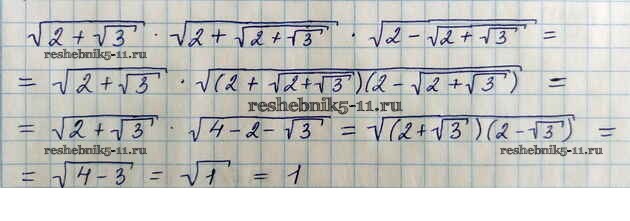 √(2 + √3) · √(2 + √(2 + √3)) · √(2 - √(2 + √3)) =
reshebnik5-11.ru
= √(2 + √3) · √((2 + √(2 + √3))(2 - √(2 + √3))) =
reshebnik5-11.ru
= √(2 + √3) · √(4 - 2 - √3) = √((2 + √3)(2 - √3)) =
reshebnik5-11.ru reshebnik5-11.ru
= √(4 - 3) = √1 = 1